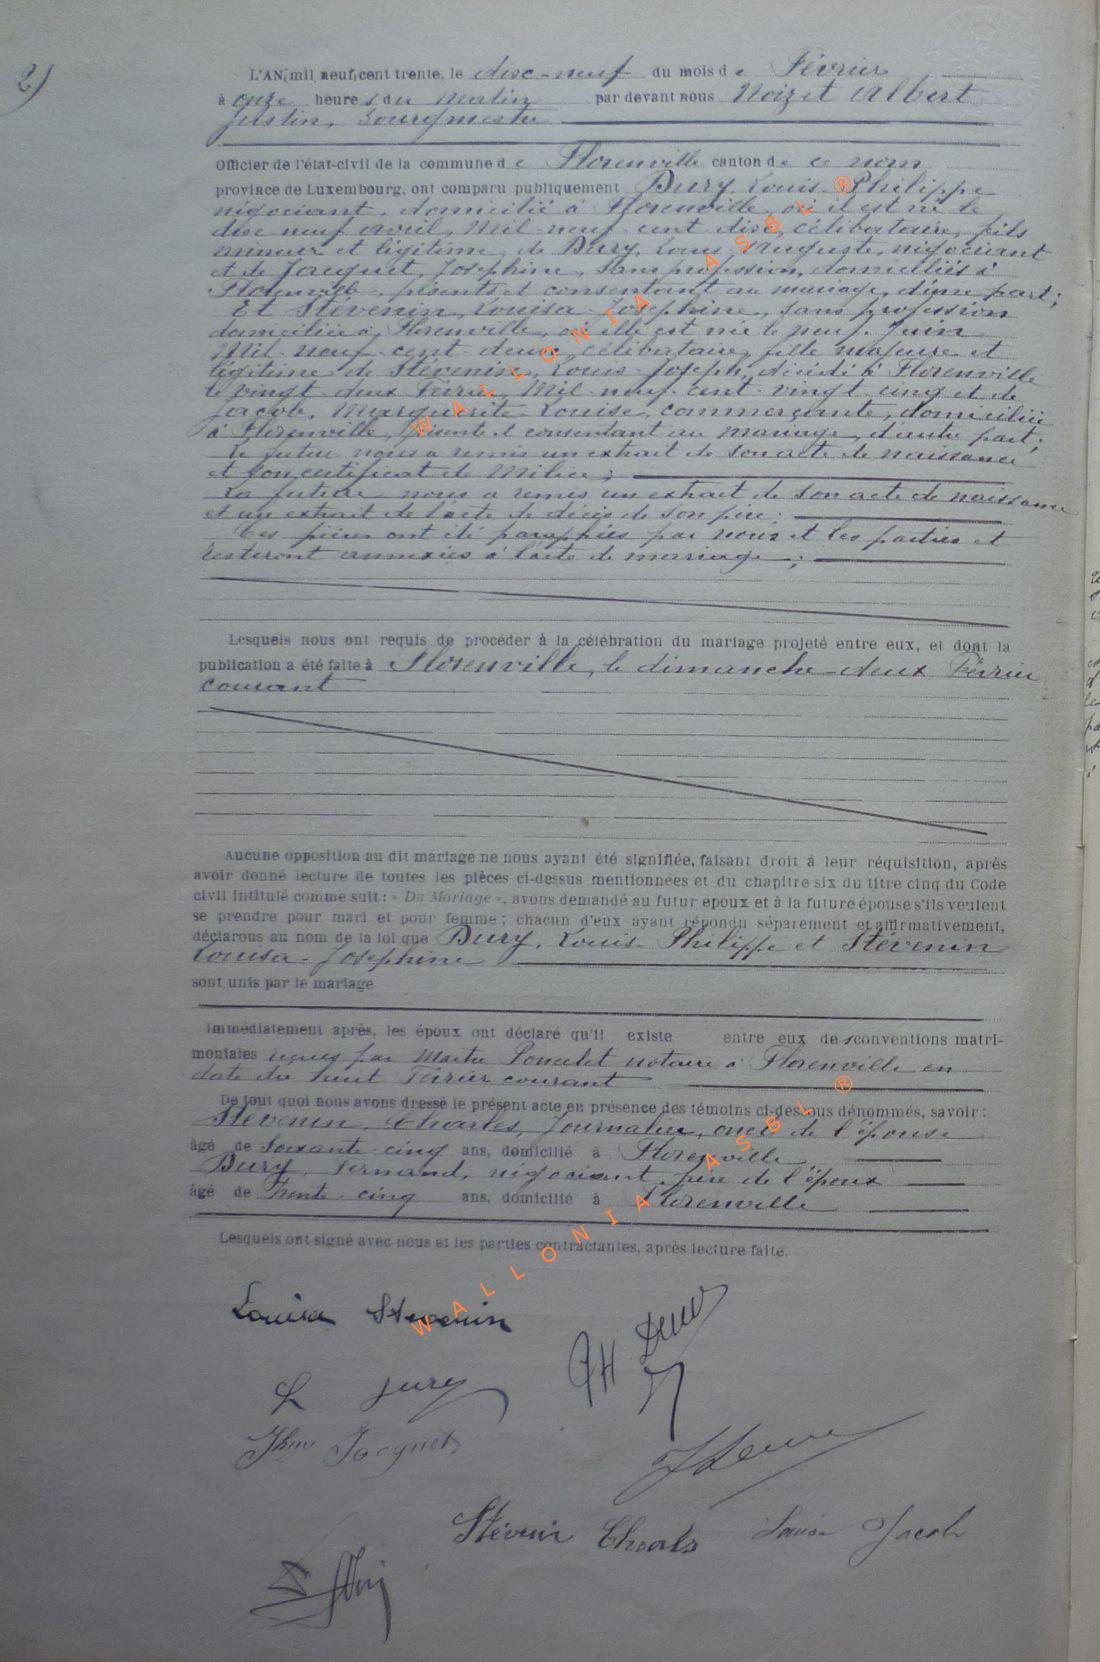 2)
L'AN mil neuf cent trente, le disc-neuf du mois de Février
à onze heures du matin par devant nous Noizet Albert
Justin, Bourgmestre
Officier de l'état-civil de la commune de Florenville canton de ce nom
province de Luxembourg, ont comparu publiquement Dury, Louis-Philippe
négociant, domicilié à Florenville, où il est né le
disc neuf avril, Mil-neuf-cent-disc, célibataire, fils
mineur et légitime de Dury, Louis, Auguste, négociant
et de Jacquet, Joséphine, sans profession, domiciliés à
Florenville, présents et consentant au mariage, d'une part;
Et Stévenin, Louisa-Joséphine, sans profession
domiciliée à Florenville, où elle est née le neuf Juin
Mil-neuf-cent-deux, célibataire, fille majeure et
légitime de Stévenin, Louis-Joseph, décédé à Florenville
le vingt-deux Février, Mil-neuf-cent-vingt-cinq et de
Jacob, Marguerite-Louise, commerçante, domiciliée
à Florenville, présente et consentant au mariage, d'autre part;
Le futur nous a remis un extrait de son acte de naissance
et son certificat de Milice;
La future nous a remis un extrait de son acte de naissance
et un extrait de l'acte de décès de son père;
Ces pièces ont été paraphées par nous et les parties et
resteront annexées à l'acte de mariage;
Lesquels nous ont requis de procéder à la célébration du mariage projeté entre eux, et dont la
publication a été faite à Florenville, le dimanche deux Février
courant
Aucune opposition au dit mariage ne nous ayant été signifiée, faisant droit à leur réquisition, après
avoir donné lecture de toutes les pièces ci-dessus mentionnées et du chapitre six du titre cinq du Code
civil intitulé comme suit : « Du Mariage », avons demandé au futur epoux et à la future épouse s'ils veulent
se prendre pour mari et pour femme ; chacun d'eux ayant répondu séparement et affirmativement,
déclarons au nom de la loi que Dury, Louis-Philippe et Stévenin
Louisa-Joséphine
sont unis par le mariage
Immédiatement après, les époux ont déclaré qu'il existe entre eux des conventions matri-
moniales reçues par Maître Poncelet notaire à Florenville en
date du huit Février courant
De tout quoi nous avons dressé le présent acte en présence des témoins ci-dessous dénommés, savoir :
Stévenin, Charles, Journalier, oncle de l'épouse
âgé de Soixante-cinq ans, domicilié à Florenville
Dury, Fernand, négociant, frère de l'époux
âgé de Trente-cinq ans, domicilié à Florenville
Lesquels ont signé avec nous et les parties contractantes, après lecture faite.
Louisa Stevenin
L Dury
Jacquet
Stévenin Charles Louise Jacob
WALLONIA ASBL ®
WALLONIA ASBL ®